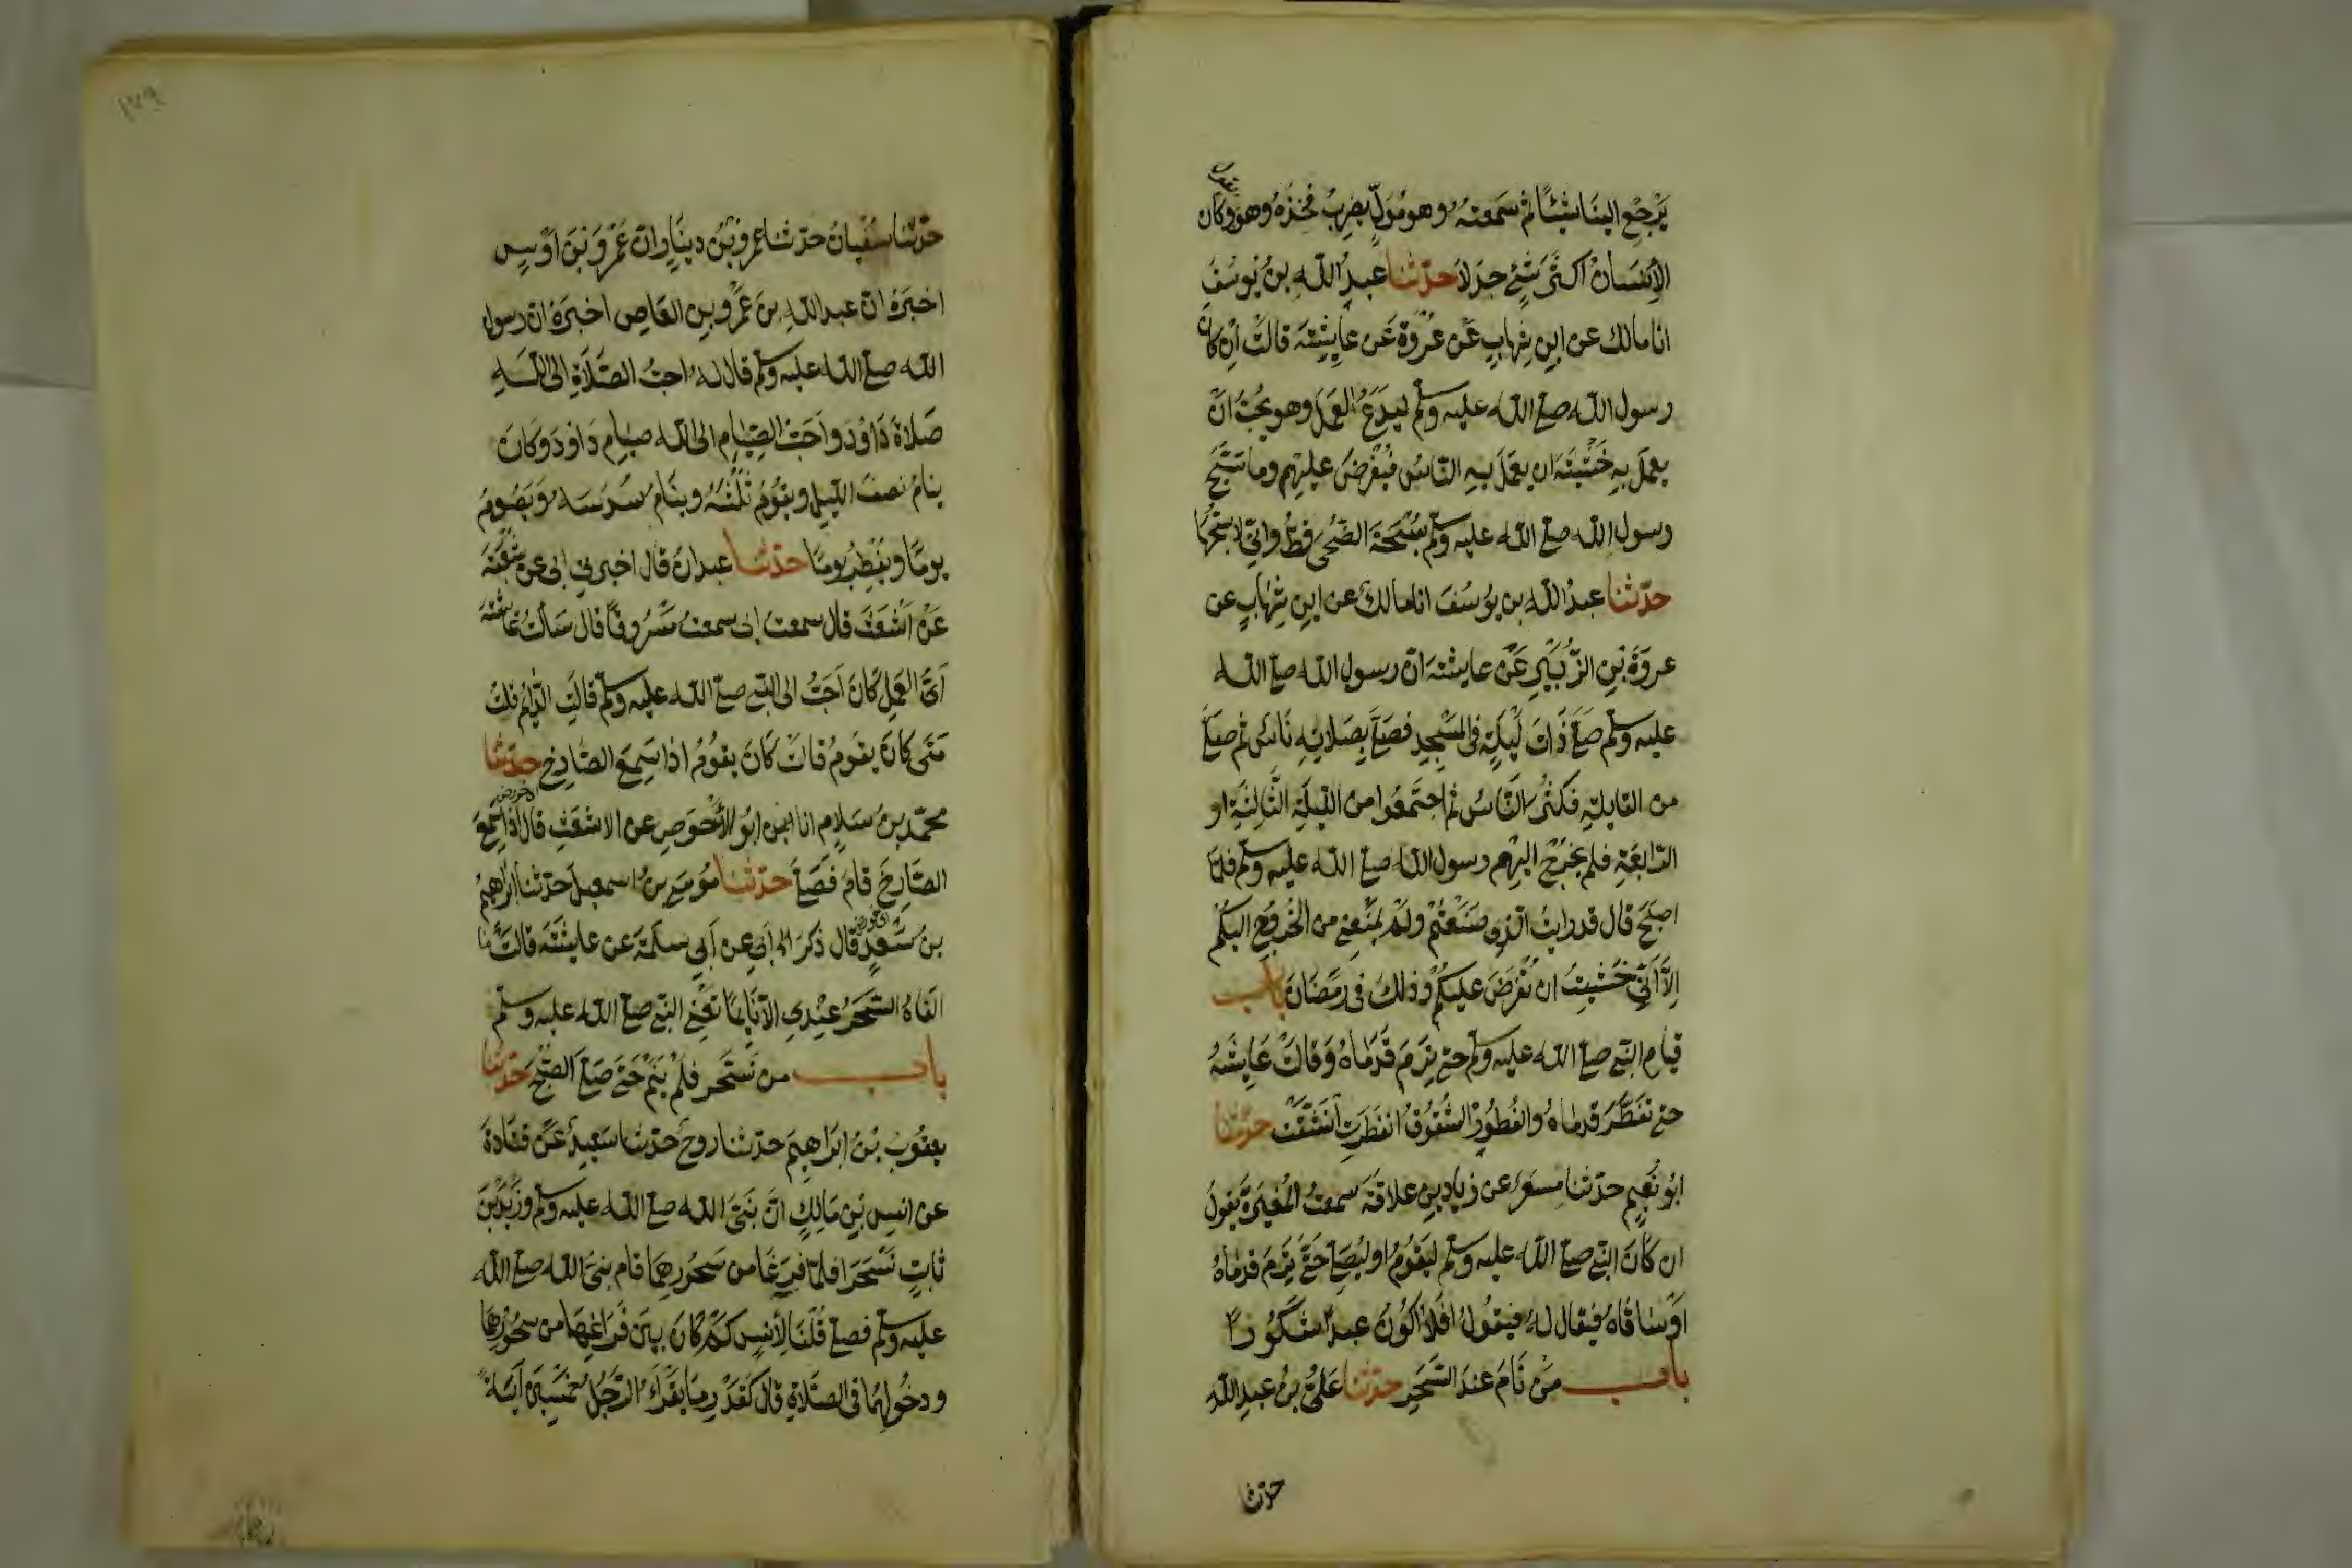 يقول
يَرْجِعْ الينَا شَيْئًا ثم سَمعتُهُ وهو مُوَلٍّ يضرِبُ فَخِذَهُ وهو وكان
الإنْسَانُ اكثَرَ شَيْءٍ جدَلًا حدّثنا عبدُ اللهِ بنُ يُوسُفَ
انا مالك عن ابنِ شِهابٍ عَن عُرْوةَ عَن عايشةَ قالتْ اِنْ كانَ
رسول الله صلى الله عليه وسلم ليَدَعُ العَمَلَ وهو يحبُّ انْ
يعمَلَ بهِ خَشْيَةَ ان يعمَلَ بهِ النّاسُ فيُفْرَضَ عليهم وما سَبَّحَ
رسول الله صلى الله عليه وسلم سُبْحَةَ الضّحى قطُّ وانّي لاسبّحُهَا
حدّثنا عبدُ الله بن يوُسُفَ انا مالكٌ عن ابنِ شِهابٍ عن
عروَةَ بْنِ الزُّبَيْرِ عَنْ عايشةَ انّ رسول الله صلى الله
عليه وسلم صلى ذَاتَ لَيْلَةٍ في المَسْجِدِ فصَلَّى بصَلاتِهِ نَاسٌ ثم صلى
من القَابِلَةِ فكَثُرَ النّاسُ ثم اجتَمَعُوا من اللّيلَةِ الثّالِثَةِ او
الرّابعَةِ فلم يَخْرُجْ اليهم رسول الله صلى الله عليه وسلم فلمّا
اصبَحَ قال قد رايتُ الّذِي صَنَعْتُمْ ولَمْ يَمْنَعْنِي من الخُرُوجِ اليكُمْ
اِلّا اَنّي خَشِيتُ ان تُفْرَضَ عليكُمْ وذلكَ في رمَضَانَ باب
قيام النّبي صلى الله عليه وسلم حتى تَرِمَ قَدَمَاهُ وَقالَتْ عَايِشَةُ
حتى تفَطَّرَ قدماهُ والفُطُورُ الشُّقُوقُ انفَطَرَت انشَقَّتْ حدّثنا
ابُو نُعَيمٍ حدّثنا مِسعَرٌ عن زيادِ بنِ علاقَةَ سمعتُ المُغيرَةَ يَقولُ
ان كانَ النّبي صلى الله عليه وسلم ليَقُومُ او ليُصَلّي حَتّى تَرِمَ قدمَاهُ
اوْ سَاقَاهُ فيُقالُ لهُ فيقُولُ افَلَا اكُونُ عبدًا شَكُورًا
باب مَن نَامَ عندَ السَّحَرِ حدّثنا عَليُّ بنُ عبدِ اللهِ
حدثنا
حدّثنا سُفيانُ حدّثنا عمرُو بْنُ دينَارٍ انّ عَمْرَو بْنَ اَوْسٍ
اخبَرَهُ انّ عبد اللهِ بنَ عَمْرِو بنِ العَاصِ اخبَرَهُ ان رسول
الله صلى الله عليه وسلم قال لهُ احبُّ الصّلَاةِ الى اللهِ
صَلاةُ دَاوُدَ واَحَبُّ الصِّيَامِ الى الله صيامُ دَاودَ وكانَ
ينامُ نصفَ اللّيلِ ويقُومُ ثُلُثَهُ وينَامُ سُدُسَهُ ويَصُومُ
يومًا ويُفْطِرُ يومًا حدّثنا عبدانُ قال اخبرني ابي عن شُعْبَةَ
عَنْ اَشْعَثَ قال سمعت ابي سمعتُ مَسْرُوقًا قال سَألْتُ عائشةَ
اَىُّ العَمَلِ كَانَ اَحَبُّ الى النّبي صلى الله عليه وسلم قالَتِ الدّايِمُ قلتُ
مَتَى كَانَ يقومُ قالتْ كَانَ يقُومُ اذا سَمِعَ الصّارِخَ حدّثنا
محمّد بنُ سَلامٍ انا ابُو الأحْوَصِ عن الاشعَثِ قال اذا سَمعَ
الصّارِخَ قامَ فَصَلّى حدّثنا مُوسَى بنُ اسمعيلَ حدّثنا ابراهيمُ
بنُ سَعدٍ قال ذَكرَ ابِي عن اَبي سلَمةَ عن عايشةَ قالَتْ مَا
الفَاهُ السَّحَرُ عِنْدِي الّا نَايِمًا تعْني النّبي صلى الله عليه وسلم
باب من تسَحّرَ فلمْ ينَمْ حَتّى صَلّى الصّبْحَ حدّثنا
يعقُوبُ بْنُ ابرَاهيمَ حدّثنا روحٌ حدّثنا سَعِيدٌ عَنْ قتَادةَ
عن انسِ بْنِ مَالِكٍ انّ نَبيَّ الله صلى الله عليه وسلم وزَيْدَ بْنَ
ثابتٍ تَسَحَّرا فلمّا فرَغَا من سَحُورِهِمَا قام نبيُّ الله صلى الله
عليه وسلم فصلى قُلْنَا لِأنَسٍ كَمْ كَانَ بينَ فَراغِهِمَا من سحُورهِمَا
ودخُولِهِمَا في الصّلاةِ قال كَقَدْرِ مَا يقْرَأُ الرّجُلُ خَمْسِينَ آيَةً